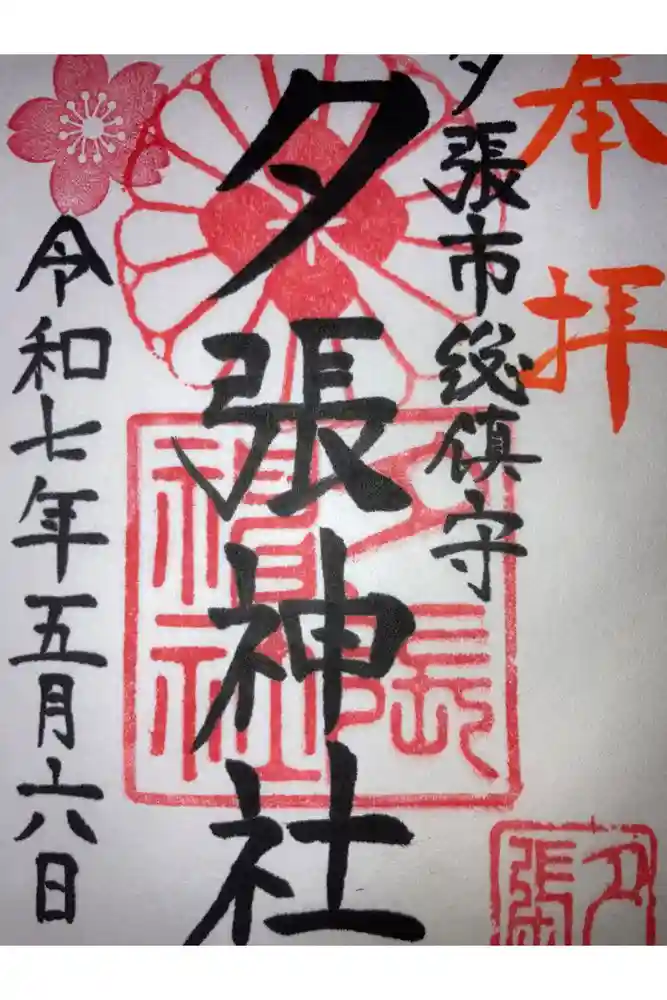 奉拝
夕張市総鎮守
夕張神社
令和七年五月六日
夕張神社
夕張